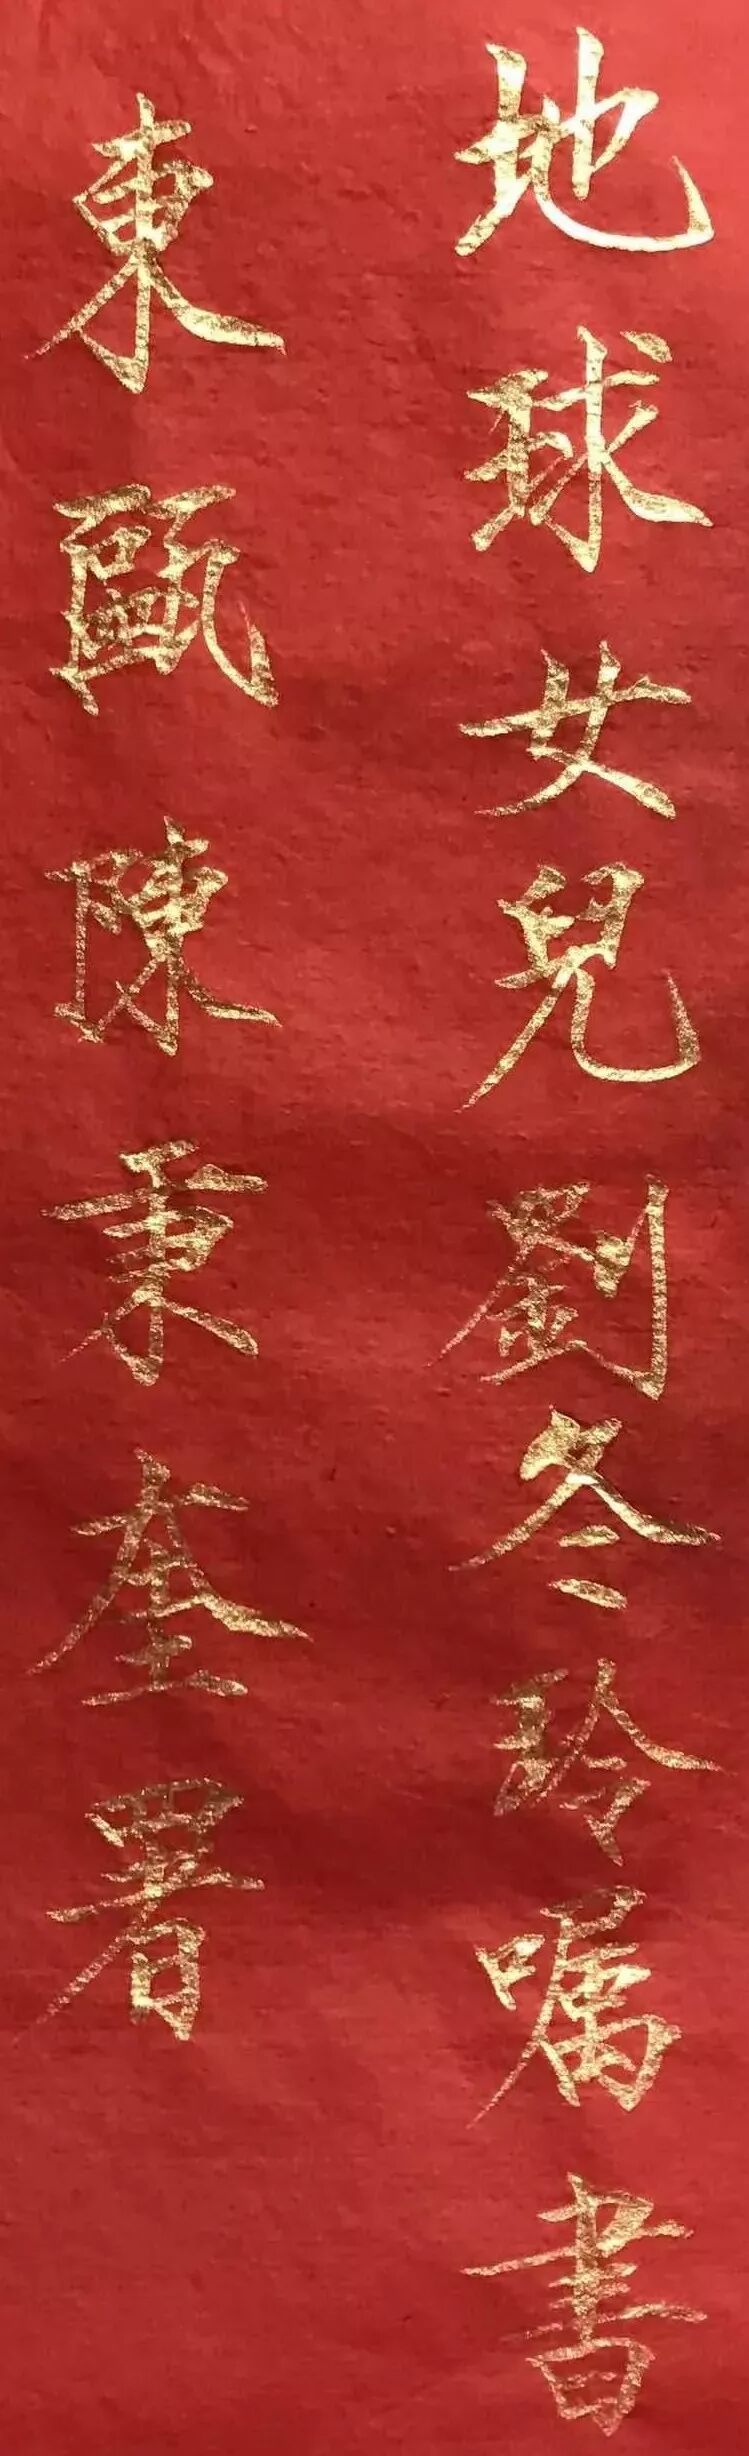 地球女兒劉冬玲嘱書
東甌陳秉奎署